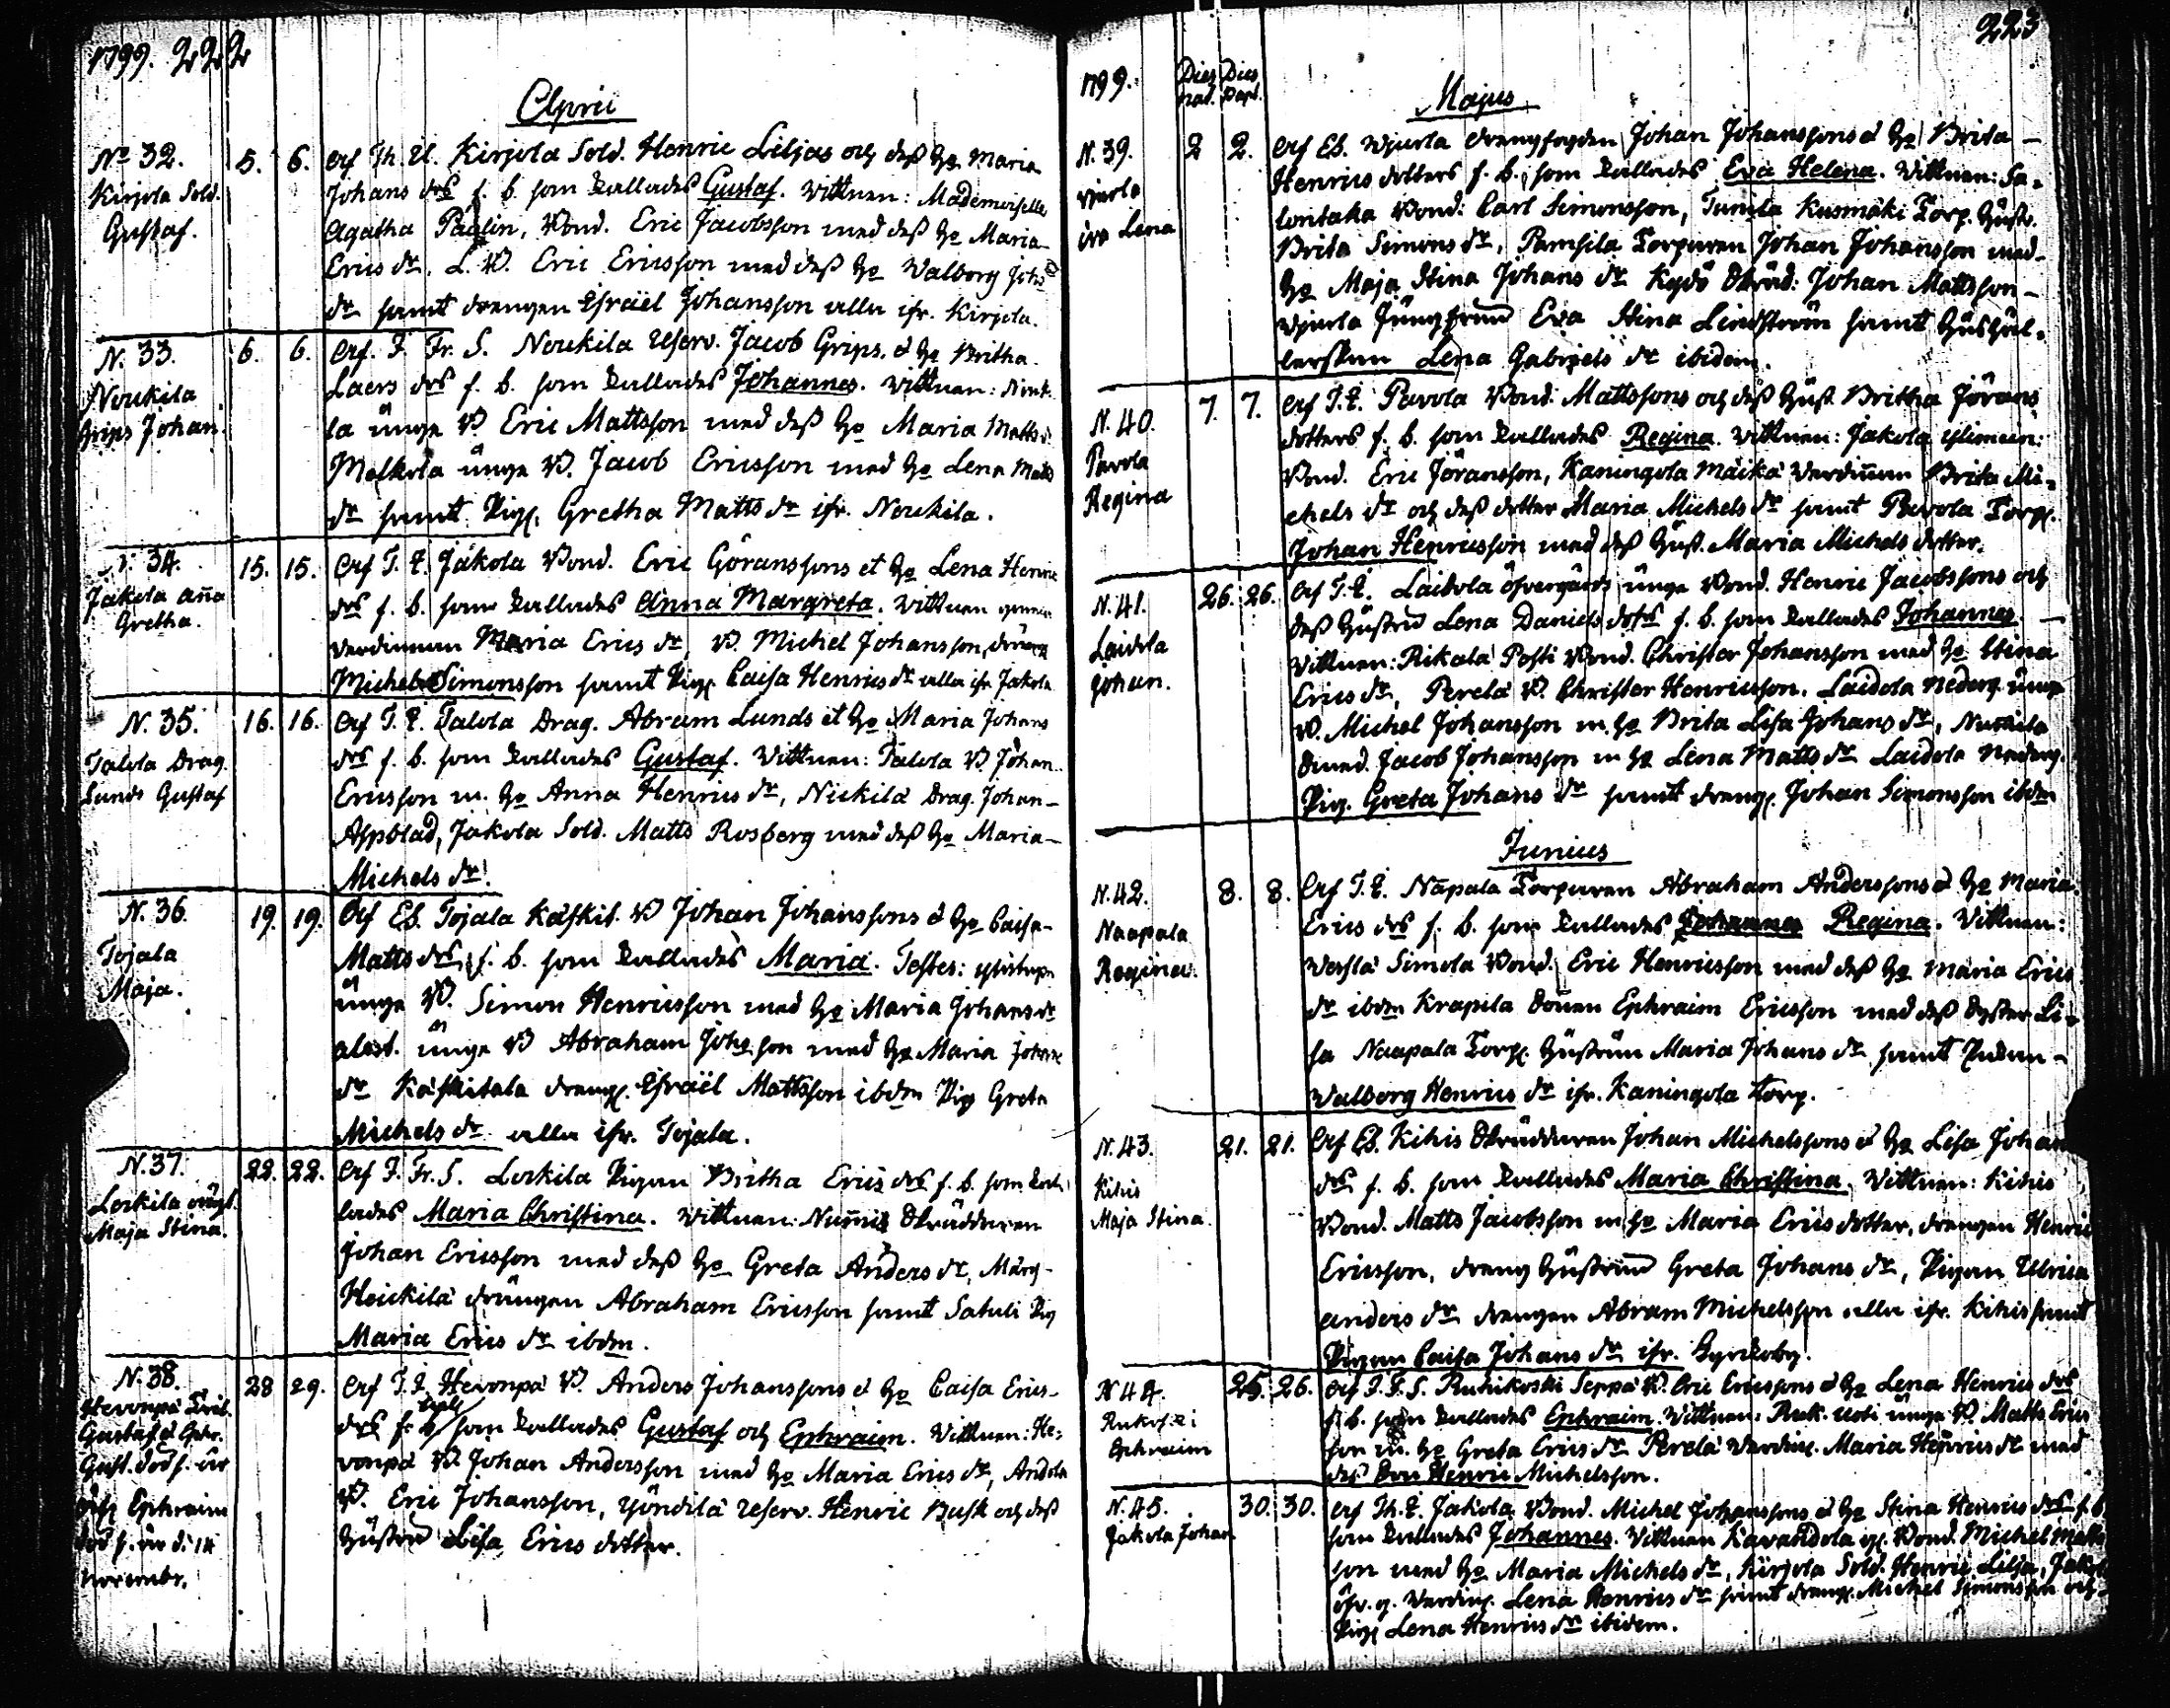 1799. 222
Aprii
No 32. 5. 6. Af Th. U. Kirjola Sold. Henric Liljas och dess Ho Maria
Kirjola Sold. Johans drs f. b. som kallades Gustaf. Vittnen: Mademoiselle
Gustaf. Agatha Paulin, Bond. Eric Jacobsson med dess Ho Maria
Erics dr. L. B. Eric Ericsson med dess Ho Walborg Johs
dr samt drengen Esraël Johansson alla ifr. Kirjola.
N. 33. 6. 6. Af. F. Fr. S. Noukila Reserv. Jacob Grips, & Ho Britha
Noukila Laers drs f. b. som kallades Johannes. Vittnen: Nouki
Grips Johan. la unge B. Eric Mattsson med dess Ho Maria Matts d.
Melkola unge B. Jacob Ericsson med Ho Lena Matts
dr samt Pig. Gretha Matts dr ifr. Noukila.
N. 34. 15. 15. Af T. E. Jakola Bond. Eric Göranssons et Ho Lena Henric
Jakola Aña drs f. b. som kallades Anna Margreta. Vittnen
Gretha. Maria Erics dr, B. Michel Johansson,
Michel Simonsson samt Pig. Caisa Henrics dr alla ifr Jakola
N. 35. 16. 16. Af T. E. Talola Drag. Abram Lunds et Ho Maria Johans
Talola Drag. drs f. b. som kallades Gustaf. Vittnen: Talola B. Johan
Lunds Gustaf Ericsson m. Ho Anna Henrics dr, Nickilä Drag. Johan
Aspblad, Jakola Sold. Matts Rosberg med dess Ho Maria
Michels dr.
N. 36. 19. 19. Af Eb. Tojala Käskit. B Johan Johanssons & Ho Caisa
Tojala Matts drs f. b. som kallades Maria. Testes:
Maja. unge B. Simon Henricsson med Ho Maria Johans dr
alest. unge B Abraham Johsson med Ho Maria Johans
dr Käskitala dreng. Esraël Mattsson ibdm Pig Greta
Michels dr alla ifr. Tojala.
N. 37. 22. 22. Af F. Fr. S. Lorkila Pigan Britha Erics drs f. b. som kal
Lorkila oägt. lades Maria Christina. Vittnen: Numis Skräddaren
Maja Stina. Johan Ericsson med dess Ho Greta Anders dr,
Heickilä drängen Abraham Ericsson samt Satuli Pig
Maria Erics dr ibdm.
N. 38. 28 29. Af T. E. Hevonpä B. Anders Johanssons & Ho Caisa Erics
Hevonpä drs f. b. som kallades Gustaf och Ephraim. Vittnen: He-
Gustaf & Ephr. vonpä B. Johan Andersson med Ho Maria Erics dr, Andola
Gust. död B. Eric Johansson, Yöndilä Reserv. Henric Busk och dess
Ephraim Hustru Lisa Erics dotter.
död d. 14
novembr.
223
1799. Dies nat. Dies bapt.
Majus
N. 39. 2 2. Af Eb. Wjurla drengfogden Johan Johanssons & Ho Brita
Wjurla Henrics dotters f. b. som kallades Eva Helena. Vittnen: Sa-
Eva Lena lontaka Bond. Carl Simonsson, Tumla Kusmäki Torp. Hustr.
Brita Simons dr, Pamsila Torparen Johan Johansson med
Ho Maja Stina Johans dr Kydö Skräd: Johan Mattsson
Wjurla Jungfrun Eva Stina Lindström samt Hushål-
lerskan Lena Gabriels dr ibidem.
N. 40. 7. 7. Af T. E. Pavola Bond. Mattssons och dess Hust. Britha Jörans
Pavola dotters f. b. som kallades Regina. Vittnen: Jakola
Regina Bond. Eric Jöransson, Kaningola Mäikä Värdinnan Brita Mi-
chels dr och dess dotter Maria Michels dr samt Pavola Torp.
Johan Henricsson med dess Hust. Maria Michels dotter.
N. 41. 26. 26. Af T. E. Laidola öfvergårds unge Bond. Henric Jacobssons och
Laidola dess Hustru Lena Daniels dotrs f. b. som kallades Johannes
Johan. Vittnen: Rikala Posti Bond. Christer Johansson med Ho Stina
Erics dr, Perelä B. Christer Henricsson, Laidola Nederg. unge
B. Michel Johansson m. Ho Brita Lisa Johans dr,
Smed. Jacob Johansson m Ho Lena Matts dr Laidola Nederg.
Pig. Greta Johans dr samt dreng. Johan Simonsson ibdm
Junius
N. 42. 8. 8. Af T. E. Napala Torparen Abraham Anderssons & Ho Maria
Naapala Erics drs f. b. som kallades Johannes Regina. Vittnen:
Regina. Simola Bond. Eric Henricsson med dess Ho Maria Erics
dr ibdm Krapila Sonen Ephraim Ericsson med dess Syster Li-
sa Naapala Torp. Hustrun Maria Johans dr samt
Walborg Henrics dr ifr. Kaningola Torp.
N. 43. 21. 21. Af Eb. Kihis Skräddaren Johan Michelssons & Ho Lisa Johans
Kihis drs f. b. som kallades Maria Christina. Vittnen: Kihis
Maja Stina. Bond. Matts Jacobsson m Ho Maria Erics dotter, drengen Henric
Ericsson, dreng Hustrun Greta Johans dr, Pigan Ulrica
Anders dr drengen Abram Michelsson alla ifr. Kihis samt
Pigan Caisa Johans dr ifr. Kyrkoby.
N 44. 25. 26. Af F. F. S. Ruhikoski Seppä B. Eric Ericssons & Ho Lena Henrics drs
Ruhikoski f. b. som kallades Ephraim. Vittnen: Ruk. Uoti unge B. Matts Erics
Ephraim son m. Ho Greta Erics dr Perelä Värdin. Maria Henrics dr med
dess Son Henric Michelsson.
N. 45. 30. 30. Af Th. E. Jakola Bond. Michel Johanssons & Ho Stina Henrics drs f. b.
Jakola Johan som kallades Johannes. Vittnen Kavandola Bond. Michel Matts
son med Ho Maria Michels dr, Kirjola Sold. Henric Lilja, Jakola
öfr. g. Värdin. Lena Henrics dr samt dreng. Michel Simonsson och
Pig. Lena Henrics dr ibidem.